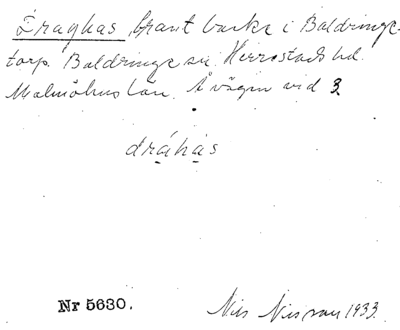 Draghas brant backe i Baldringe-
torp. Baldringe sn. Herrestads hd.
Malmöhus län. Åvägen vid 3
dráhás
Nr 5630.
Nils Nilsson 1933.